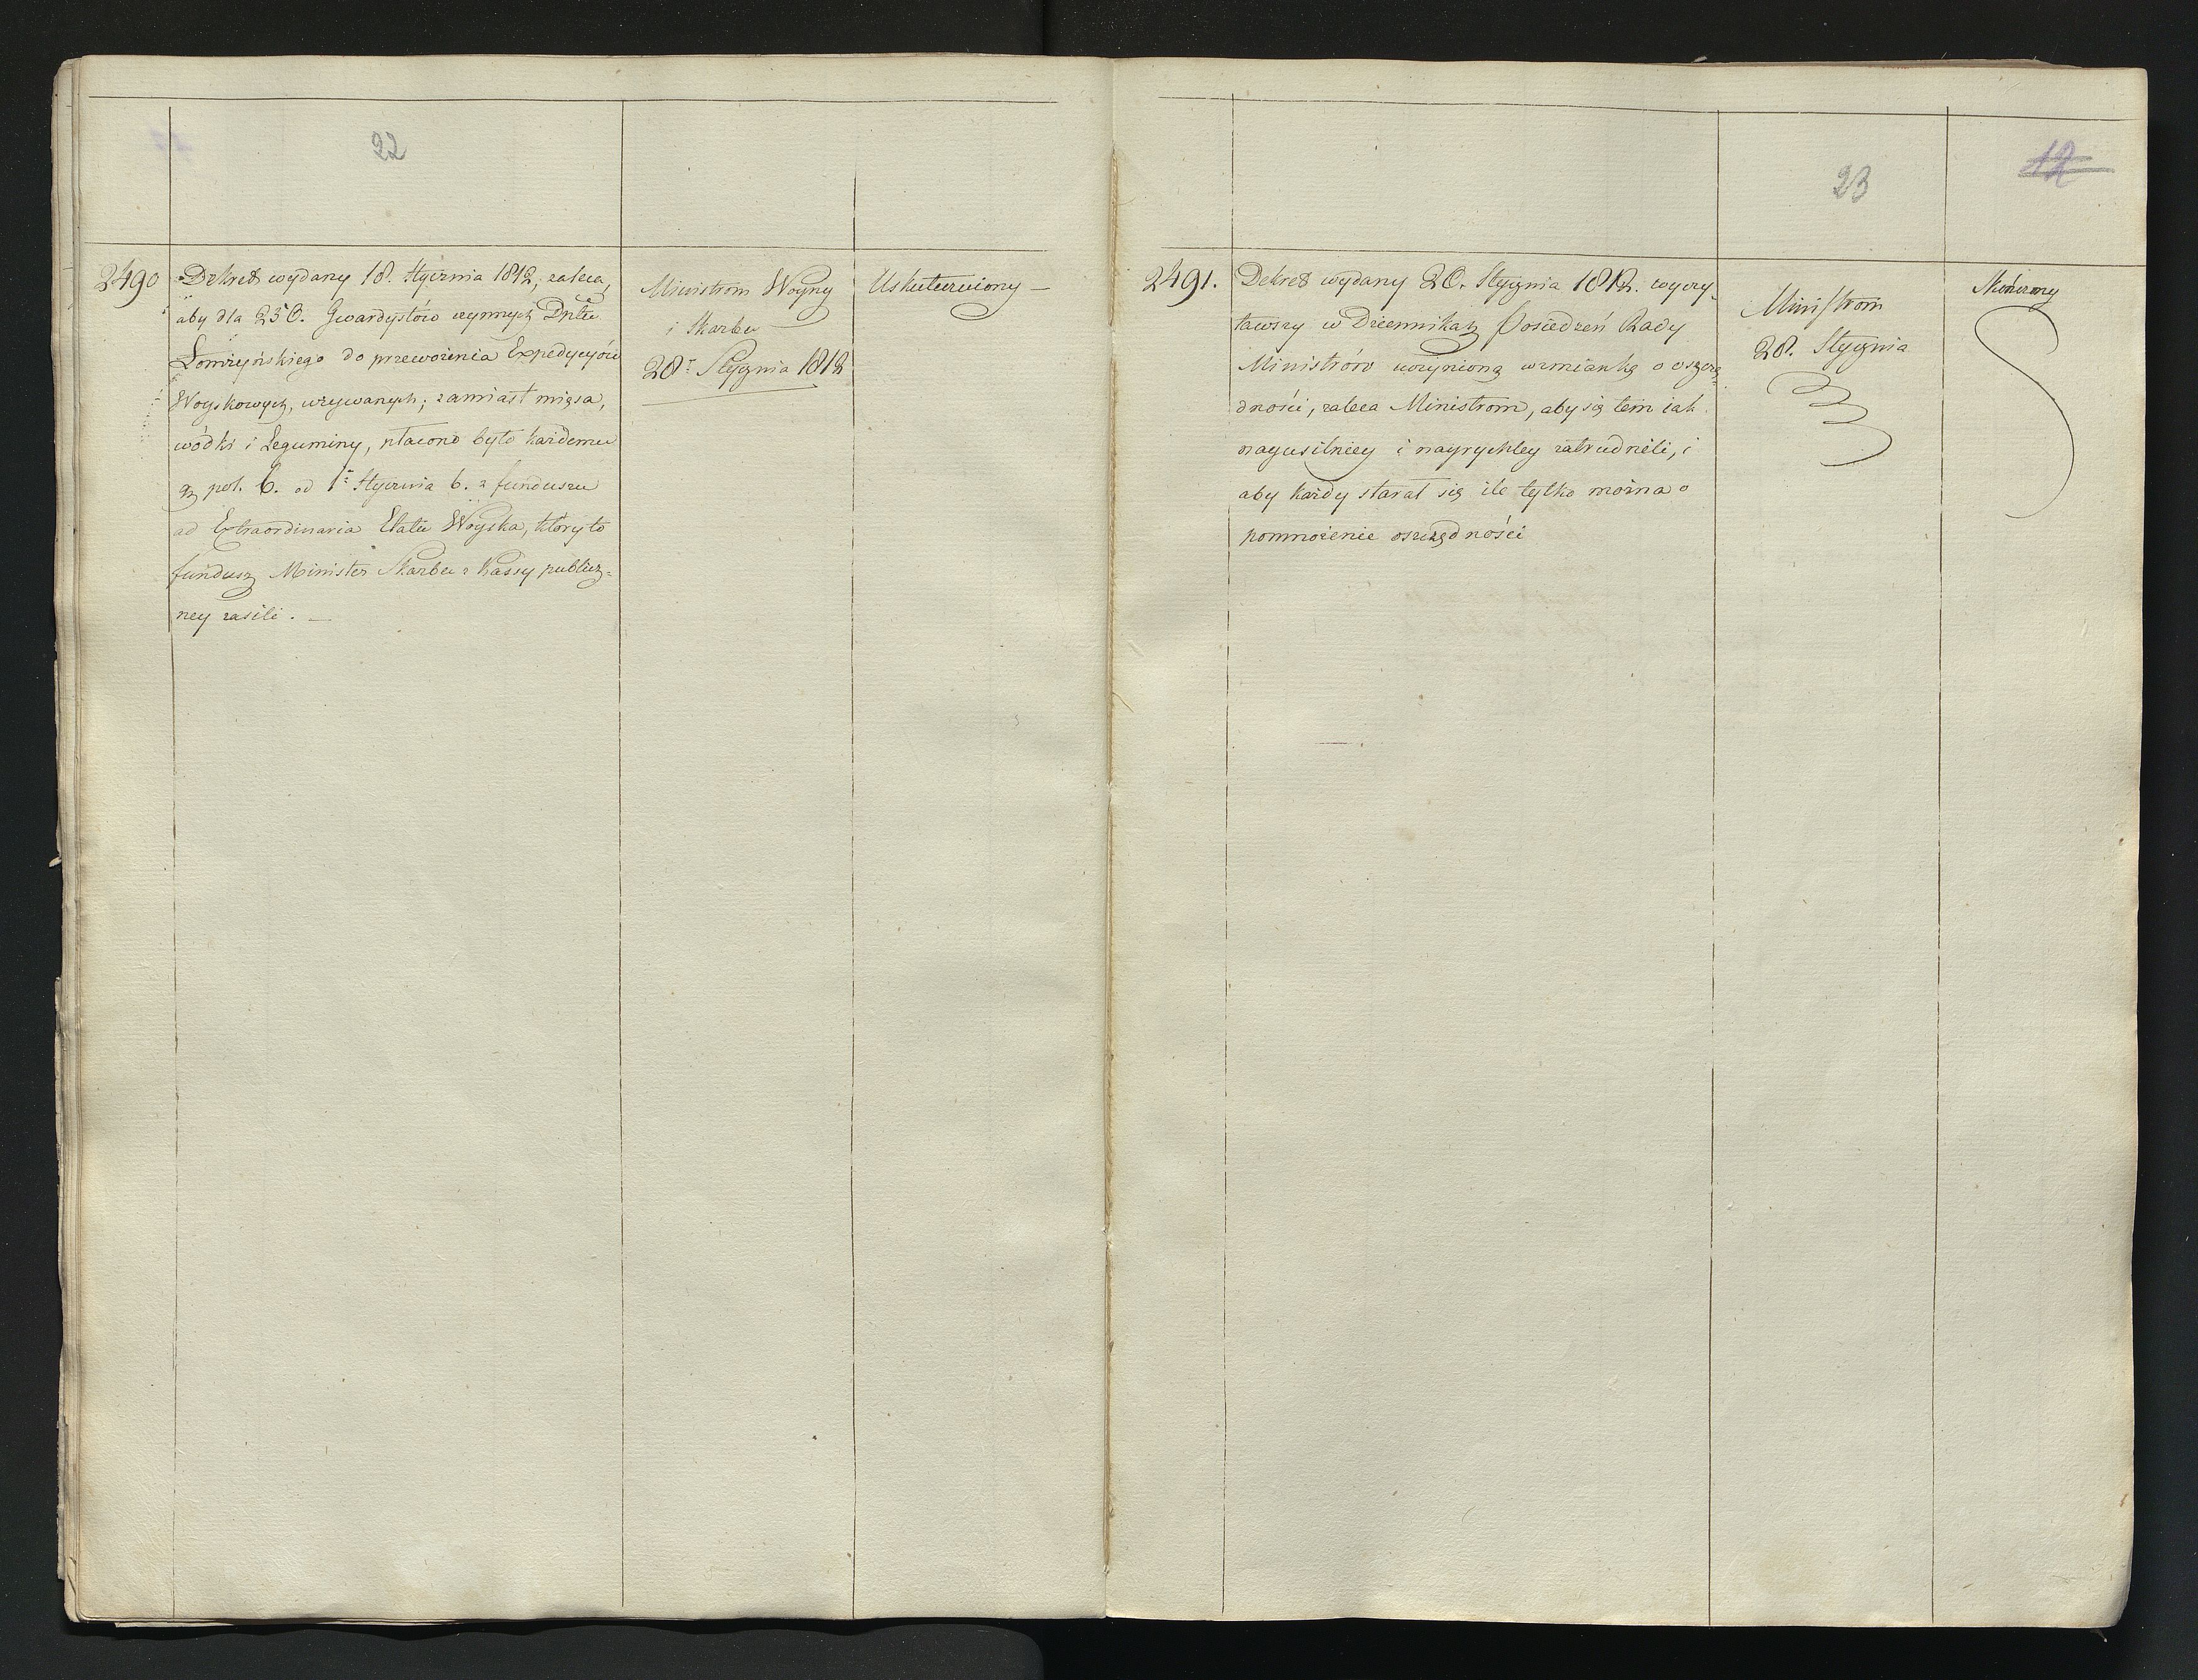 22
2490
Dekret wydany 18. Stycznia 1812, zaleca,
aby dla 250. Gwardystów czynnych Dpttu
Łomżyńskiego do przewożenia Expedycyiów
Woyskowych, używanych; zamiast mięsa,
wódki i Leguminy, płacono było każdemu
gr pol. 6. od 1º Stycznia b. z funduszu
ad Extraordinaria Etatu Woyska, który to
fundusz Minister Skarbu z Kassy publicz=
ney zasili. —
Ministrom Woyny
i Skarbu
28º Stycznia 1812
Uskuteczniony —
23
12
2491.
Dekret wydany 20. Stycznia 1812. wyczy=
tawszy w Dziennikach Posiedzeń Rady
Ministrów uczynioną wzmiankę o oszczę=
dności, zaleca Ministrom, aby się tem iak
nayusilniey i nayrychley zatrudnili, i
aby każdy starał się ile tylko można o
pomnożenie oszczędności
Ministrom
28. Stycznia
Skończony